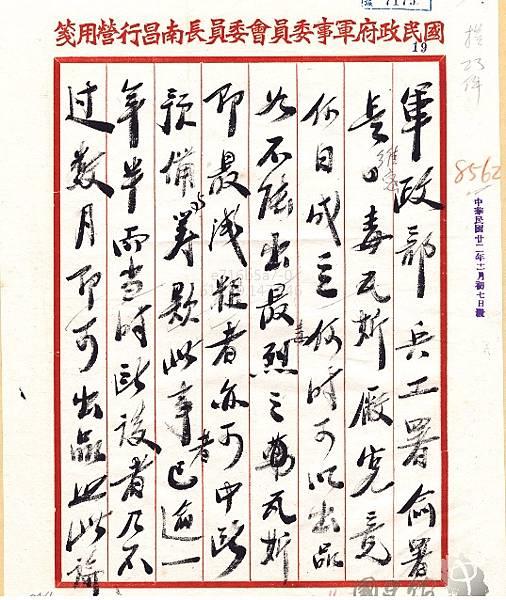 國民政府軍事委員會委員長南昌行營用箋
19
軍政部兵工署俞署
長 毒瓦斯廠究竟
何日成立何時可以出品
如不能出最烈之毒瓦斯
即最淺粗者亦可
預備籌款此事已逾一
年半而當時設者乃不
过數月即可出品
8562
中華民國廿二年 月初七日發